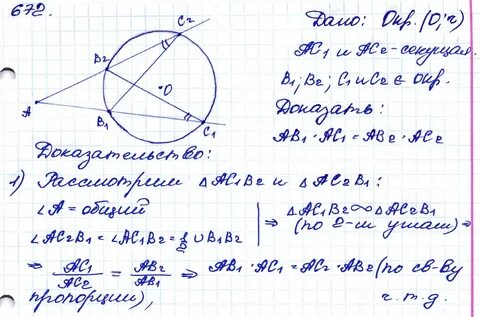 672.
Дано: Окр.(O;r)
AC1 и AC2-секущая.
B1; B2; C1 и C2 ∈ окр.
Доказать:
AB1 · AC1 = AB2 · AC2
C2
B2
O
A
B1
C1
Доказательство:
1) Рассмотрим △AC1B2 и △AC2B1:
∠A = общий
∠AC2B1 = ∠AC1B2 = 1/2 ∪B1B2
⇒ △AC1B2 ∞ △AC2B1
(по 2-м углам) ⇒
⇒ AC1/AC2 = AB2/AB1 ⇒ AB1 · AC1 = AC2 · AB2 (по св-ву
пропорции),
ч.т.д.